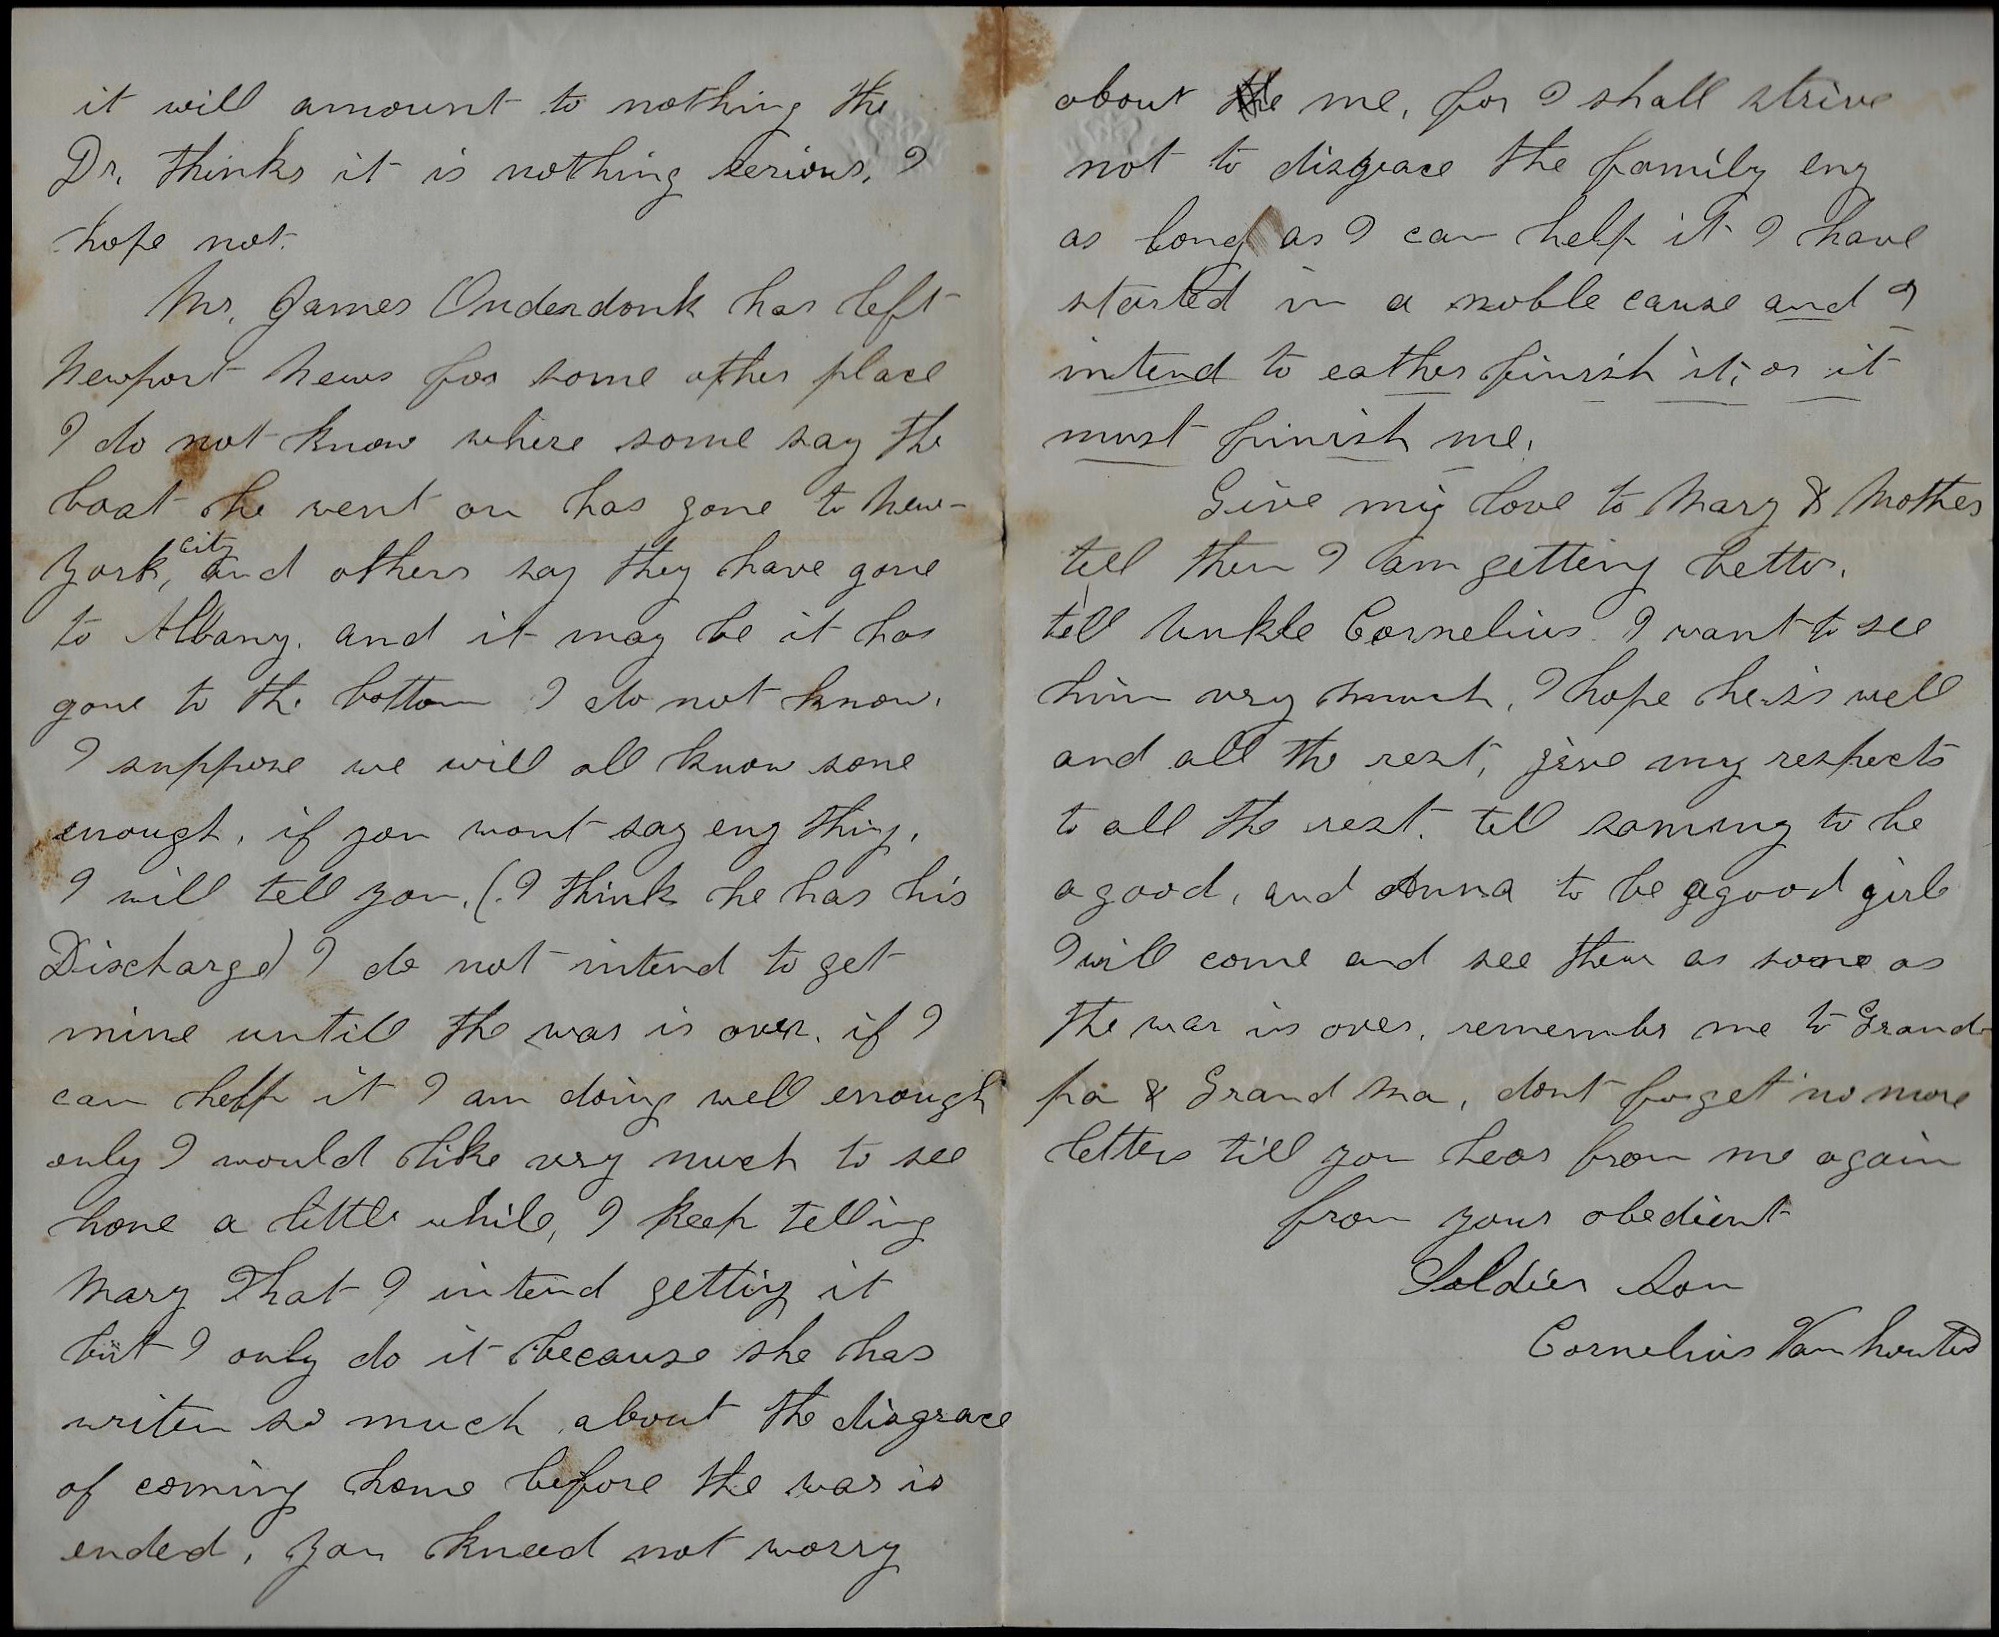 it will amount to nothing the
Dr. thinks it is nothing serious. I
hope not.
Mr. James Onderdonk has left
Newport News for some other place
I do not know where some say the
boat he went on has gone to New-
York, city and others say they have gone
to Albany. and it may be it has
gone to the bottom I do not know.
I suppose we will all know sone
enough. if you wont say eny thing.
I will tell you. (I think he has his
Discharge) I do not intend to get
mine untill the war is over. if I
can help it I am doing well enough
only I would like very much to see
home a little while, I keep telling
Mary That I intend getting it
but I only do it because she has
writen so much about the disgrace
of coming home before the war is
ended, you kneed not worry
about the me, for I shall strive
not to disgrace the family eny
as long as I can help it I have
started in a noble cause and I
intend to eather finish it; or it
must finish me.
Give my love to Mary & Mother
tell them I am getting better.
tell Unkle Cornelius I want to see
him very much, I hope he is well
and all the rest, give my respects
to all the rest. tell sammy to be
a good, and Anna to be a good girl
I will come and see them as soone as
the war is over. remember me to Grand
pa & Grand Ma, dont forget no more
letters till you hear from me again
from your obedient
Soldier Son
Cornelius Van houten